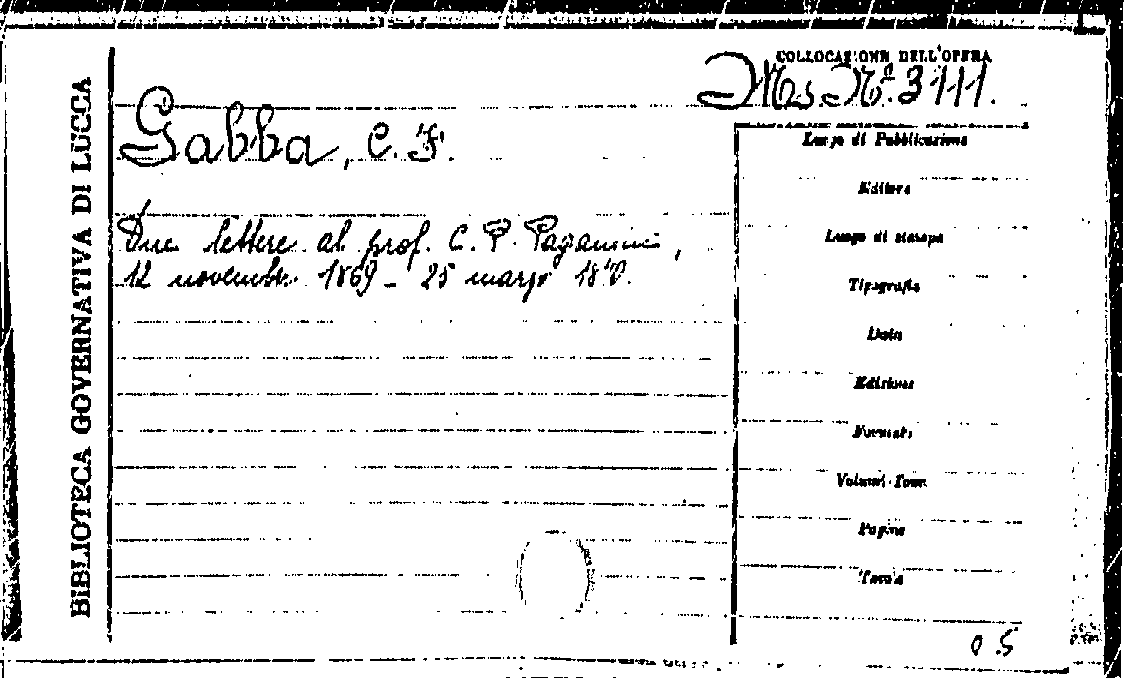 BIBLIOTECA GOVERNATIVA DI LUCCA
COLLOCAZIONE DELL'OPERA
Ms. N.º 3111.
Gabba, C. F.
Due lettere al prof. C. P. Paganini,
12 novembre 1869 - 25 marzo
Luogo di Pubblicazione
Editore
Luogo di stampa
Tipografia
Data
Edizione
Formato
Volumi-Tomi
Pagine
Tavole
05